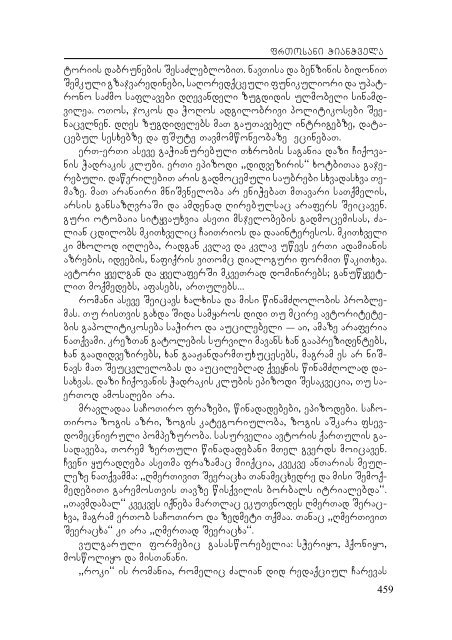 ფრთოსანი ჭიანჭველა
ტორიის დაბრუნების შესაძლებლობით. ნავთისა და ბენზინის ბიდონით
შემკული გზაჯვარედინები, საღორედქცეული ფუნიკულიორი და უპატ-
რონო საძმო საფლავები დღევანდელი ზუგდიდის ულმობელი სინამდ-
ვილეა. ოთოს, ჯოკოს და ჰოდოს ადგილობრივი პოლიტიკოსები შეე-
ნაცვლნენ. დღეს ზუგდიდელებს მათ გაუთავებელ ინტრიგებზე, დატა-
ცებულ სესხებზე და ფშუტე თავმომწონეობაზე ეცინებათ.
ერთ-ერთი ასევე გაჭიანურებული თხრობის საგანია დაზი ჩიქოვა-
ნის ჭადრაკის კლუბი. ერთი ეპიზოდი „დიდვეზირის“ ხოტბითაა გაჯე-
რებული. დაწვრილებით არის გადმოცემული საუბრები სხვადასხვა თე-
მაზე. მათ არანაირი მნიშვნელობა არ ენიჭებათ მთავარი სათქმელის,
არსის განსაზღვრაში და ამდენად ღირებულსაც არაფერს შეიცავენ.
გური ოტობაია სიტყვაუხვია ასეთი მსჯელობების გადმოცემისას, ძა-
ლიან ცდილობს მკითხველიც ჩაითრიოს და დააინტერესოს. მკითხველი
კი მხოლოდ იღლება, რადგან კვლავ და კვლავ უწევს ერთი ადამიანის
აზრების, იდეების, ნაფიქრის ვითომც დიალოგური ფორმით წაკითხვა.
ავტორი ყველგან და ყველაფერში მკვეთრად დომინირებს; განუწყვეტ-
ლივ მოქმედებს, აფასებს, ართულებს...
რომანი ასევე შეიცავს ხალხისა და მისი წინამძღოლობის პრობლე-
მას. თუ რისთვის გახდა შიდა სამყაროს დიდი თუ მცირე ავტორიტეტე-
ბის გაპოლიტიკოსება საჭირო და აუცილებელი — აი, ამაზე არაფერია
ნათქვამი. კრეზთან გატოლების სურვილი მავანს ხან გააპრეზიდენტებს,
ხან გაადიდვეზირებს, ხან გააჟანდარმთუხუცესებს, მაგრამ ეს არ ნიშ-
ნავს მათ შეუცვლელობას და აუცილებლად ქვეყნის წინამძღოლად და-
სახვას. დაზი ჩიქოვანის ჭადრაკის კლუბის ეპიზოდი შესაკვეცია, თუ სა-
ერთოდ ამოსაღები არა.
მრავლადაა საჩოთირო ფრაზები, წინადადებები, ეპიზოდები. საჩო-
თიროა ზოგის აზრი, ზოგის კატეგორიულობა, ზოგის აშკარა ფსევ-
დომეცნიერული პომპეზურობა. სასურველია ავტორის ქართულის გა-
სადავება, თორემ ზერთული წინადადებანი მთელ გვერდს მოიცავენ.
ჩვენი ყურადღება ასეთმა ფრაზამაც მიიქცია, კვეკვე ანთარიას მეუღ-
ლეზე ნათქვამმა: „ღმერთივით შვერაცხა თანამეცხედრე და მისი შემოქ-
მედებითი გარემოსთვის თავზე წისქვილის ბორბალს იტრიალებდა“.
„თავმდაბალ“ კვეკვეს იქნება მართლაც ეკუთვნოდეს ღმერთად შერაც-
ხვა, მაგრამ ერთობ საჩოთირო და ზედმეტი თქმაა. თანაც „ღმერთივით
შვერაცხა“ კი არა „ღმერთად შვერაცხა“.
ვულგარული ფორმებიც გასასწორებელია: სჭერიყო, ჰქონიყო,
მოსწოლიყო და მისთანანი.
„როკი“ ის რომანია, რომელიც ძალიან დიდ რედაქციულ ჩარევას
459